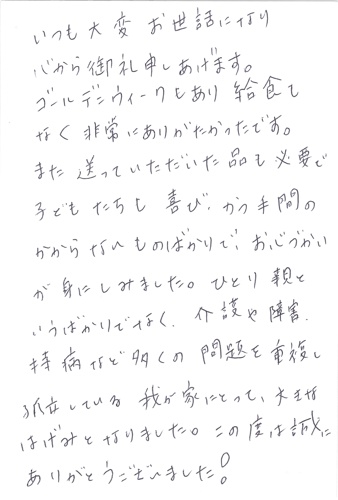 いつも大変お世話になり
心から御礼申しあげます。
ゴールデンウィークもあり給食も
なく非常にありがたかったです。
また送っていただいた品も必要で
子どもたちも喜び、かつ手間の
かからないものばかりで、お心づかい
が身にしみました。ひとり親と
いうばかりでなく、介護や障害、
持病など多くの問題を重複し
孤立している我が家にとって、大きな
はげみとなりました。この度は誠に
ありがとうございました!